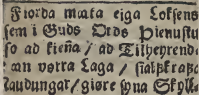 Fiorda mata eiga Loksens
sem i Guds Ords Pienustu
so ad kieña / ad Tilheyrend
an vorra Laga / sialfskraße
Laudungar / giøre syna Skyll